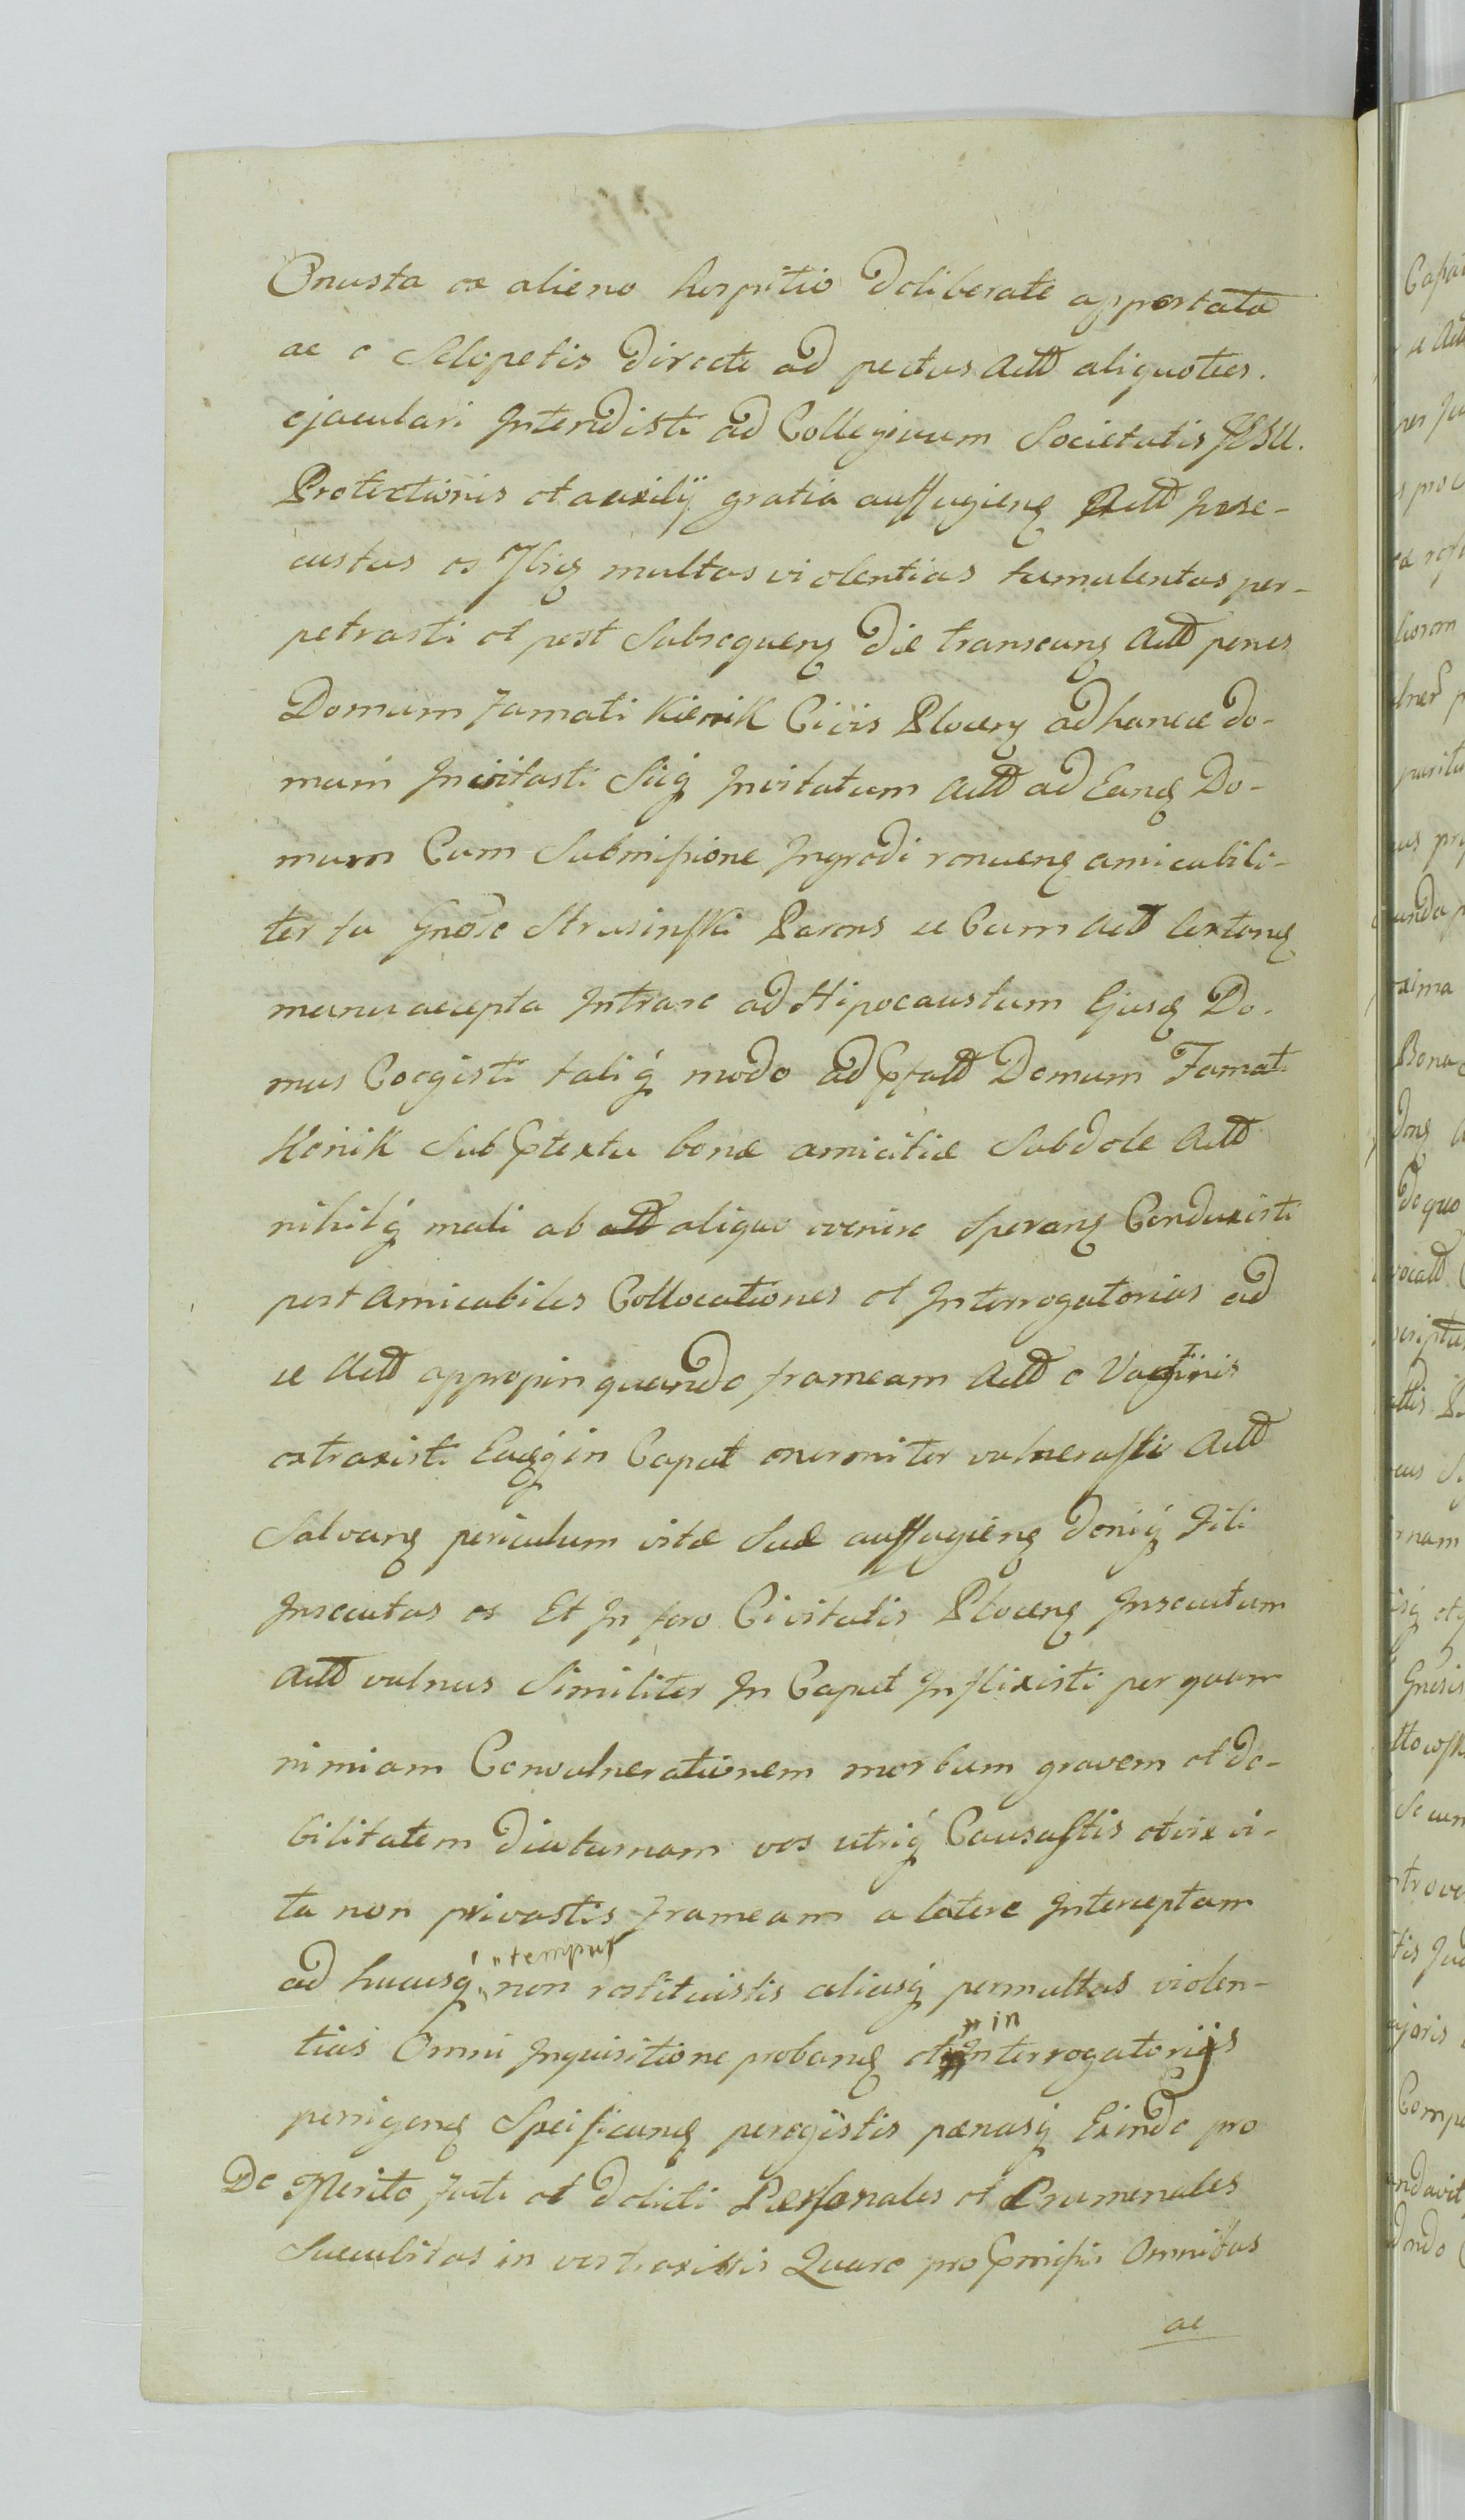 Onusta ex alieno hospitio deliberate apportata
ac e Sclopetis directe ad pectus Actt aliquoties.
ejaculari Intendisti ad Collegium Societatis JESU.
Protectionis et auxilÿ gratia auffugienq Actt prose-
cutus es Ibiq multas violentias tumulentas per-
petrasti et post Subsequenq die transeunq Actt penes
Domum famati Kienik Civis Plocenq ad hancce do-
mum Invitasti Sicq Invitatum Actt ad Eanq Do-
mum Cum Submissione Ingredi renuenq amicabili-
ter tu Gnose Strusinski Parens ac Cum Actt
manu accepta Intrare ad Hipocaustum Ejusq Do-
mus Coegisti taliq modo ad Pfatt Domum Famati
Kienik Sub Ptextu bonæ amicitiæ Subdole Actt
nihilq mali ab att aliquo evenire Speranq Conduxisti
post amicabiles Collocationes et Interrogatorias ad
se Actt appropinquando frameam Actt e Vaginis
extraxisti Eaqq in Caput enormiter vulnerasti Actt
Salvanq periculum vitæ Suæ auffugienq deniq fili
Insecutus es Et In foro Civitatis Plocenq Insecutum
Actt vulnus Similiter In Caput Inflixisti per quam
nimiam Convulnerationem morbum gravem et de-
bilitatem diuturnam vos utriq Causastis et vix vi-
ta non privastis frameam a latere Interceptam
ad hucusq "tempus non restituistis aliasq permultas violen-
tias Omni Inquisitione probanq et "in Interrogatorijs
porrigenq Specificanq peregistis pænasq Exinde pro
De Merito facti et delicti Personales et Criminales
Succubitas in vos traxistis Quare pro Pmissis Omnibus
ac